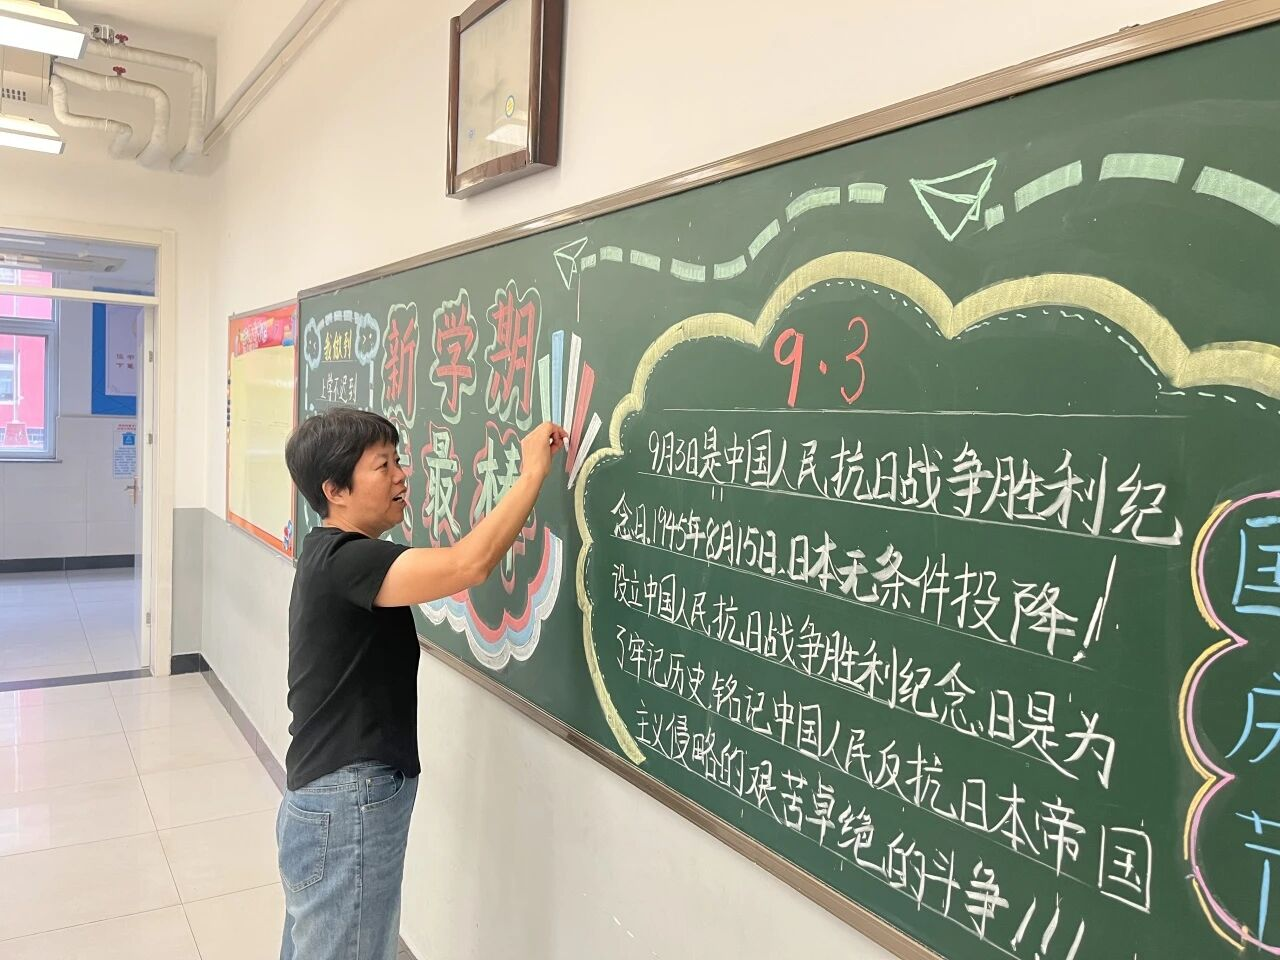 我做到
上学不迟到
新学期
最棒
9.3
9月3日是中国人民抗日战争胜利纪
念日.1945年8月15日、日本无条件投降!
设立中国人民抗日战争胜利纪念日是为
了牢记历史,铭记中国人民反抗日本帝国
主义侵略的艰苦卓绝的斗争!!!
国庆节